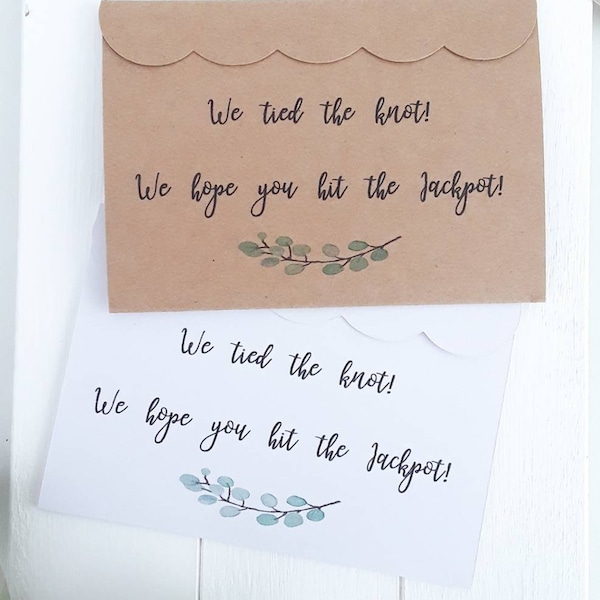 We tied the knot!
We hope you hit the Jackpot!
We tied the knot!
We hope you hit the Jackpot!